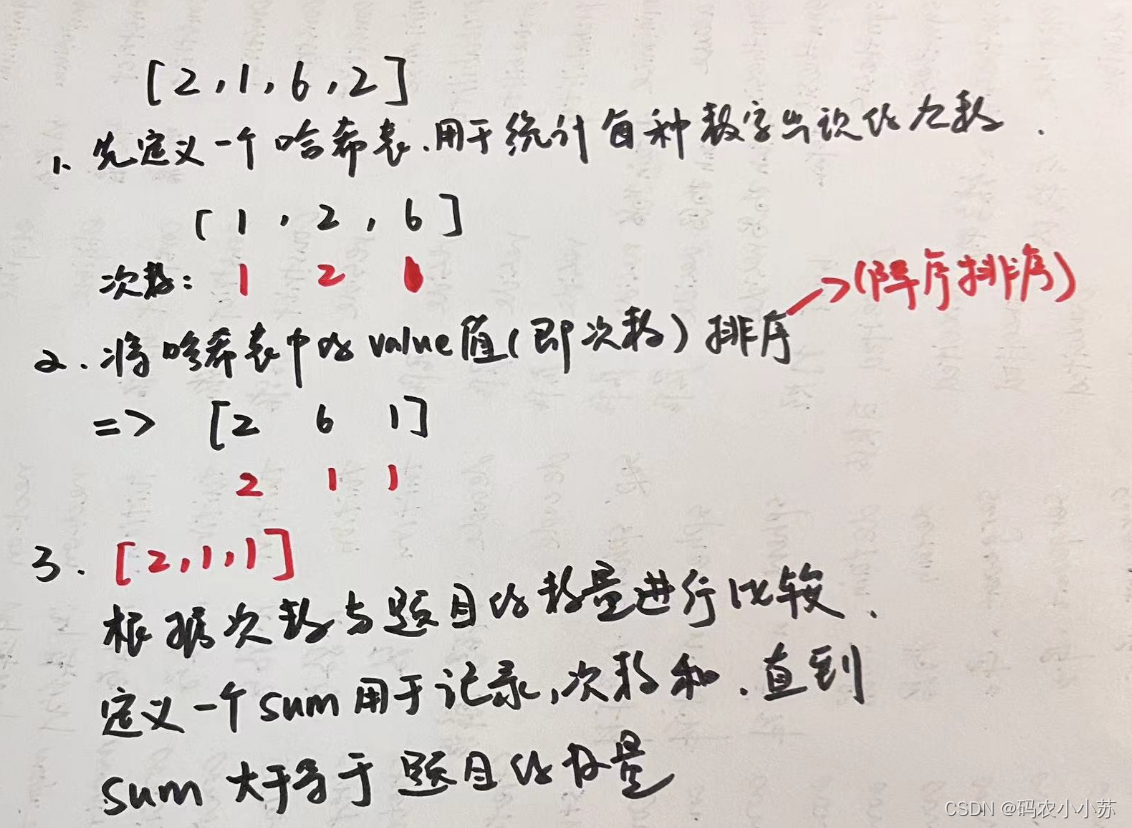 [2,1,6,2]
1、先定义一个哈希表.用于统计每种数字出现的次数.
[1,2,6]
次数: 1 2 1
→(降序排序)
2.将哈希表中的value值(即次数)排序
=> [2 6 1]
2 1 1
3. [2,1,1]
根据次数与题目的数量进行比较.
定义一个sum用于记录,次数和.直到
sum 大于等于 题目的数量
CSDN @码农小小苏